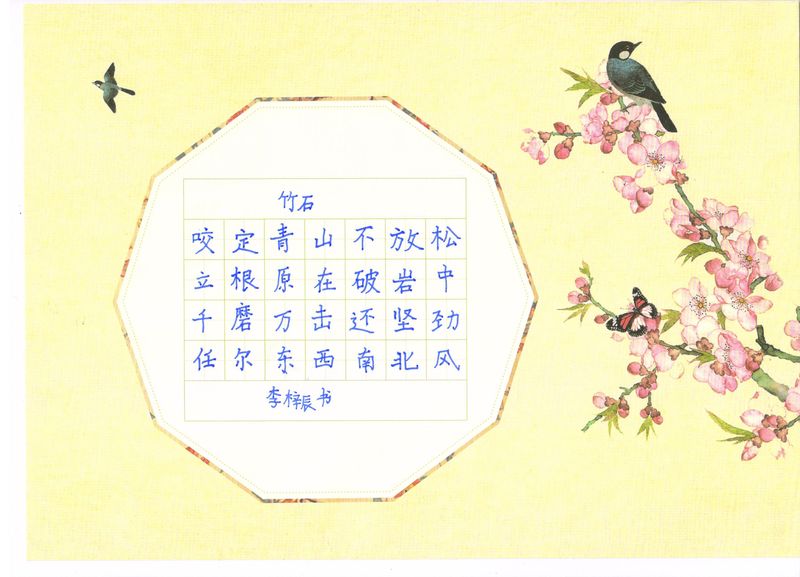 竹石
咬定青山不放松
立根原在破岩中
千磨万击还坚劲
任尔东西南北风
李梓辰书